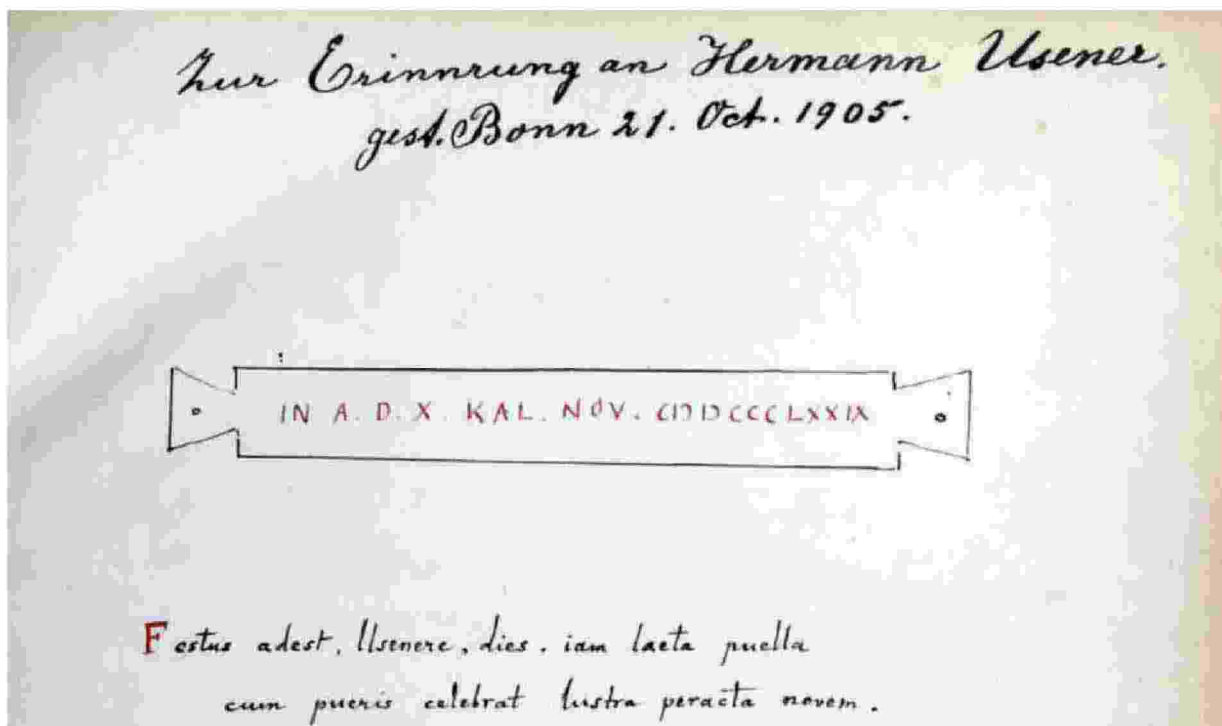 Zur Erinnrung an Hermann Usener.
gest. Bonn 21. Oct. 1905.
IN A. D. X. KAL. NOV. CIƆIƆCCCLXXIX
Festus adest, Usenere, dies. iam laeta puella
cum pueris celebrat lustra peracta novem.